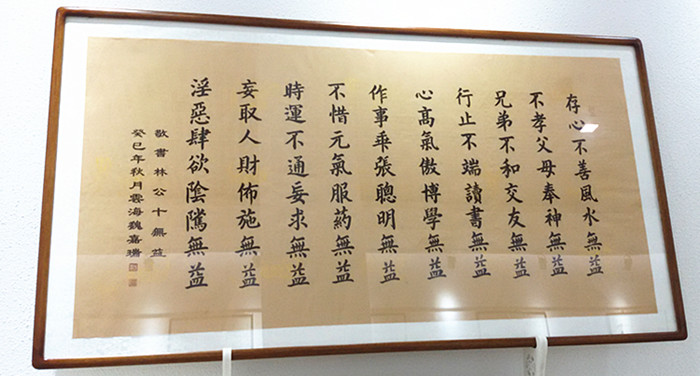 存心不善風水無益
不孝父母奉神無益
兄弟不和交友無益
行止不端讀書無益
心髙氣傲博學無益
作事乖張聰明無益
不惜元氣服葯無益
時運不通妄求無益
妄取人財佈施無益
淫惡肆欲陰騭無益
敬書林公十無益
癸巳年秋月雲海魏嘉瓚